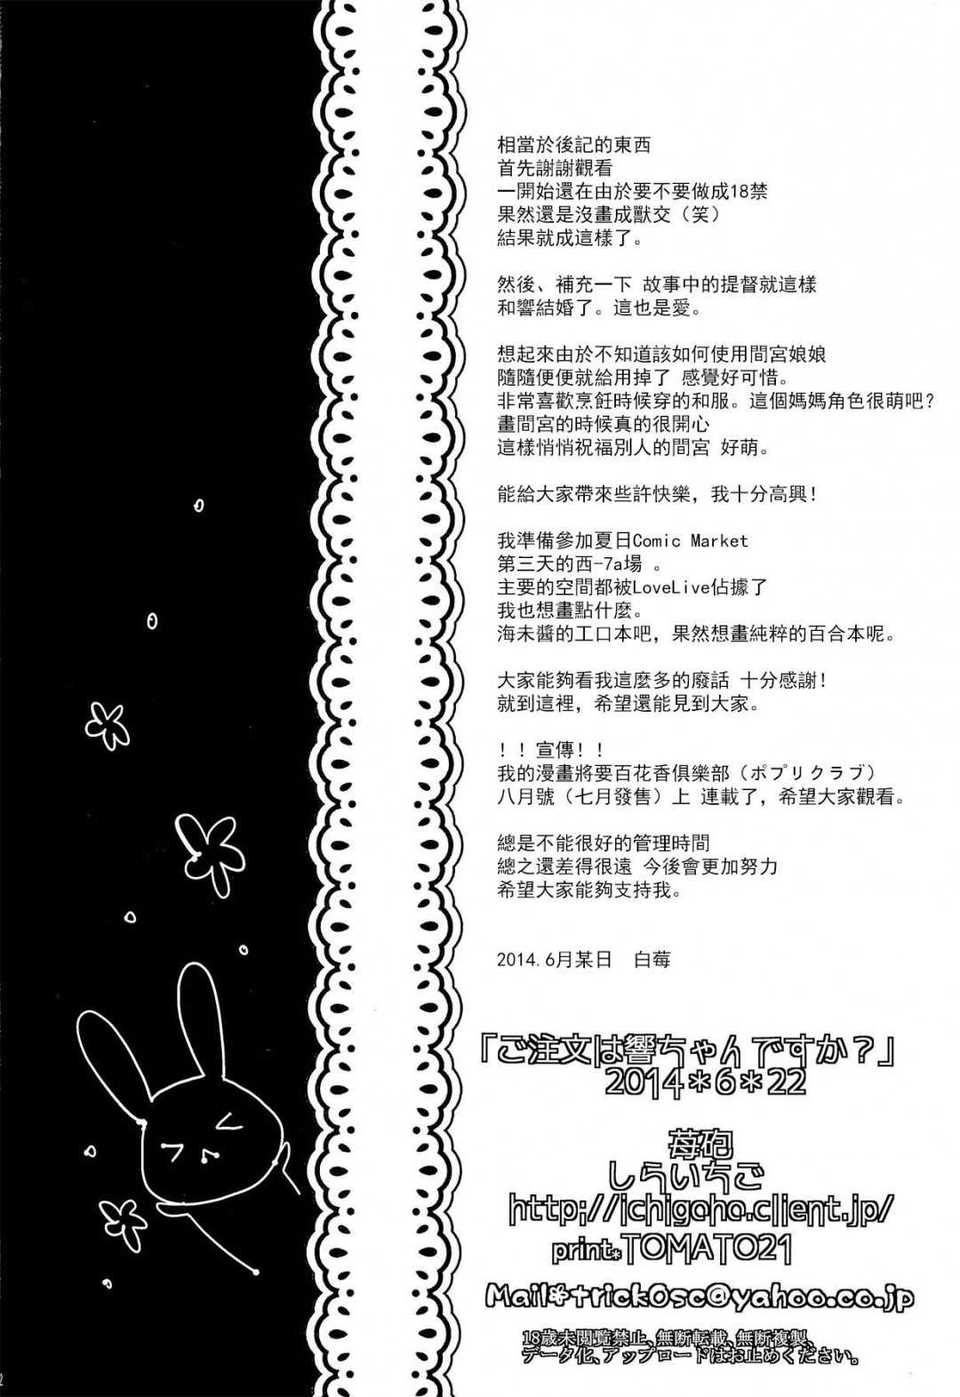 相當於後記的東西
首先謝謝觀看
一開始還在由於要不要做成18禁
果然還是沒畫成獸交（笑）
結果就成這樣了。
然後、補充一下 故事中的提督就這樣
和響結婚了。這也是愛。
想起來由於不知道該如何使用間宮娘娘
隨隨便便就給用掉了 感覺好可惜。
非常喜歡烹飪時候穿的和服。這個媽媽角色很萌吧？
畫間宮的時候真的很開心
這樣悄悄祝福別人的間宮 好萌。
能給大家帶來些許快樂，我十分高興！
我準備參加夏日Comic Market
第三天的西-7a場 。
主要的空間都被LoveLive佔據了
我也想畫點什麼。
海未醬的工口本吧，果然想畫純粹的百合本呢。
大家能夠看我這麼多的廢話 十分感謝！
就到這裡，希望還能見到大家。
！！宣傳！！
我的漫畫將要百花香俱樂部（ポプリクラブ）
八月號（七月發售）上 連載了，希望大家觀看。
總是不能很好的管理時間
總之還差得很遠 今後會更加努力
希望大家能夠支持我。
2014.6月某日　白莓
「ご注文は響ちゃんですか？」
2014＊6＊22
苺砲
しらいちご
http://ichigoho.client.jp/
print*TOMATO21
Mail*trick0sc@yahoo.co.jp
18歳未閲覧禁止、無断転載、無断複製、
データ化、アップロードはお止めください。
2